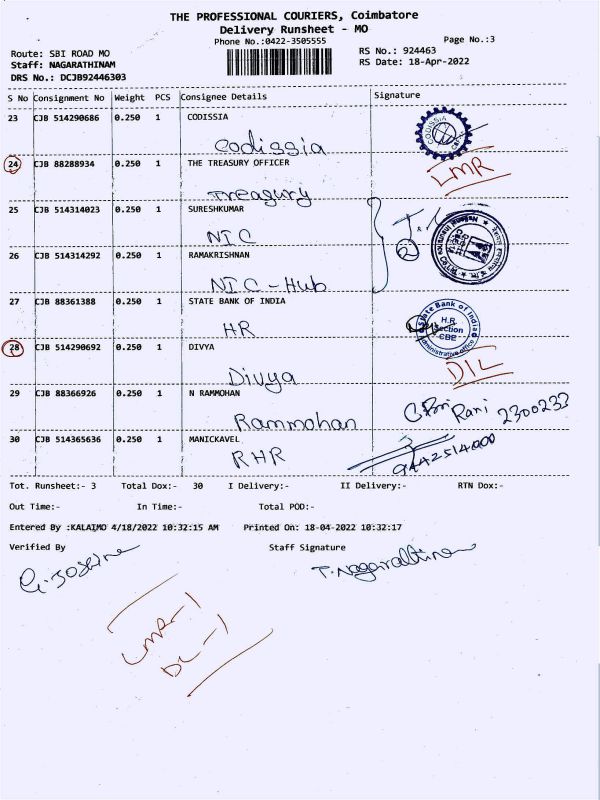 THE PROFESSIONAL COURIERS, Coimbatore
Delivery Runsheet - MO
Phone No.:0422-3505555
Page No.:3
Route: SBI ROAD MO
RS No.: 924463
Staff: NAGARATHINAM
RS Date: 18-Apr-2022
DRS No.: DCJB92446303
S No Consignment No Weight PCS Consignee Details Signature
23 CJB 514290686 0.250 1 CODISSIA
Codissia
CODISSIA
24 CJB 88288934 0.250 1 THE TREASURY OFFICER
LMR
Treasury
25 CJB 514314023 0.250 1 SURESHKUMAR
NIC
2
26 CJB 514314292 0.250 1 RAMAKRISHNAN
NIC - Hub
27 CJB 88361388 0.250 1 STATE BANK OF INDIA
HR
State Bank of India
H.R. Section
CBE
Administrative Office
28 CJB 514290692 0.250 1 DIVYA
Divya
D/L
29 CJB 88366926 0.250 1 N RAMMOHAN
Rammohan
Rani 2300233
30 CJB 514365636 0.250 1 MANICKAVEL
RHR
9442514000
Tot. Runsheet:- 3 Total Dox:- 30 I Delivery:- II Delivery:- RTN Dox:-
Out Time:- In Time:- Total POD:-
Entered By :KALAIMO 4/18/2022 10:32:15 AM Printed On: 18-04-2022 10:32:17
Verified By Staff Signature
G. Joshine T. Nagarathinam
LMR - 1
DL - 1